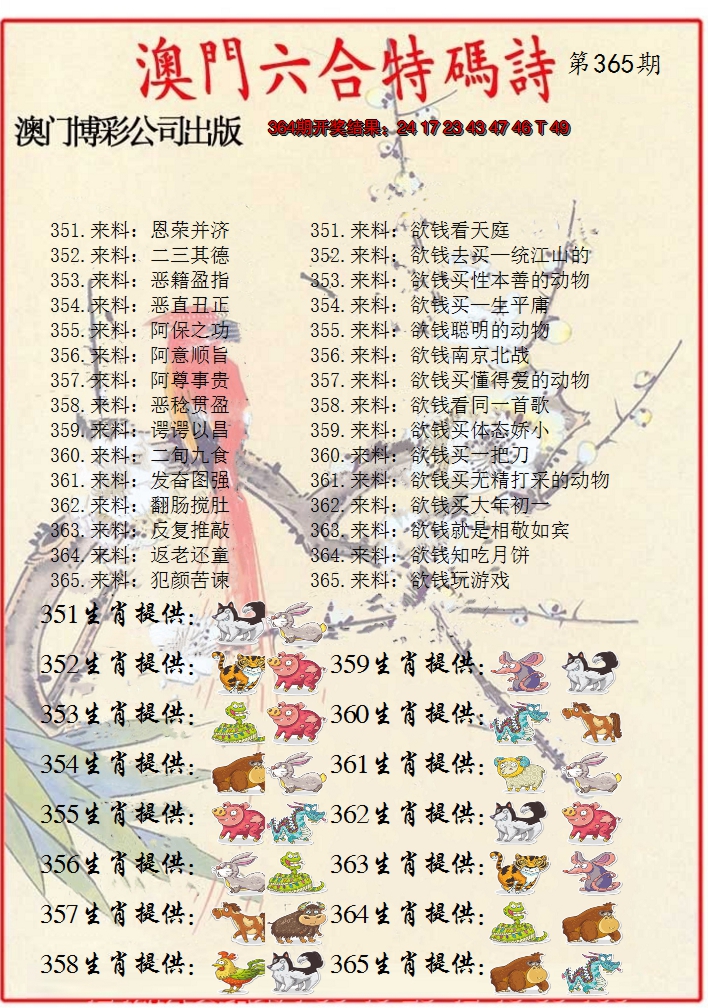 澳門六合特碼詩 第365期
澳门博彩公司出版 364期开奖结果：24 17 23 43 47 46 T 49
351.来料：恩荣并济 351.来料：欲钱看天庭
352.来料：二三其德 352.来料：欲钱去买一统江山的
353.来料：恶籍盈指 353.来料：欲钱买性本善的动物
354.来料：恶直丑正 354.来料：欲钱买一生平庸
355.来料：阿保之功 355.来料：欲钱聪明的动物
356.来料：阿意顺旨 356.来料：欲钱南京北战
357.来料：阿尊事贵 357.来料：欲钱买懂得爱的动物
358.来料：恶稔贯盈 358.来料：欲钱看同一首歌
359.来料：谔谔以昌 359.来料：欲钱买体态娇小
360.来料：二旬九食 360.来料：欲钱买一把刀
361.来料：发奋图强 361.来料：欲钱买无精打采的动物
362.来料：翻肠搅肚 362.来料：欲钱买大年初一
363.来料：反复推敲 363.来料：欲钱就是相敬如宾
364.来料：返老还童 364.来料：欲钱知吃月饼
365.来料：犯颜苦谏 365.来料：欲钱玩游戏
351生肖提供：
352生肖提供： 359生肖提供：
353生肖提供： 360生肖提供：
354生肖提供： 361生肖提供：
355生肖提供： 362生肖提供：
356生肖提供： 363生肖提供：
357生肖提供： 364生肖提供：
358生肖提供： 365生肖提供：